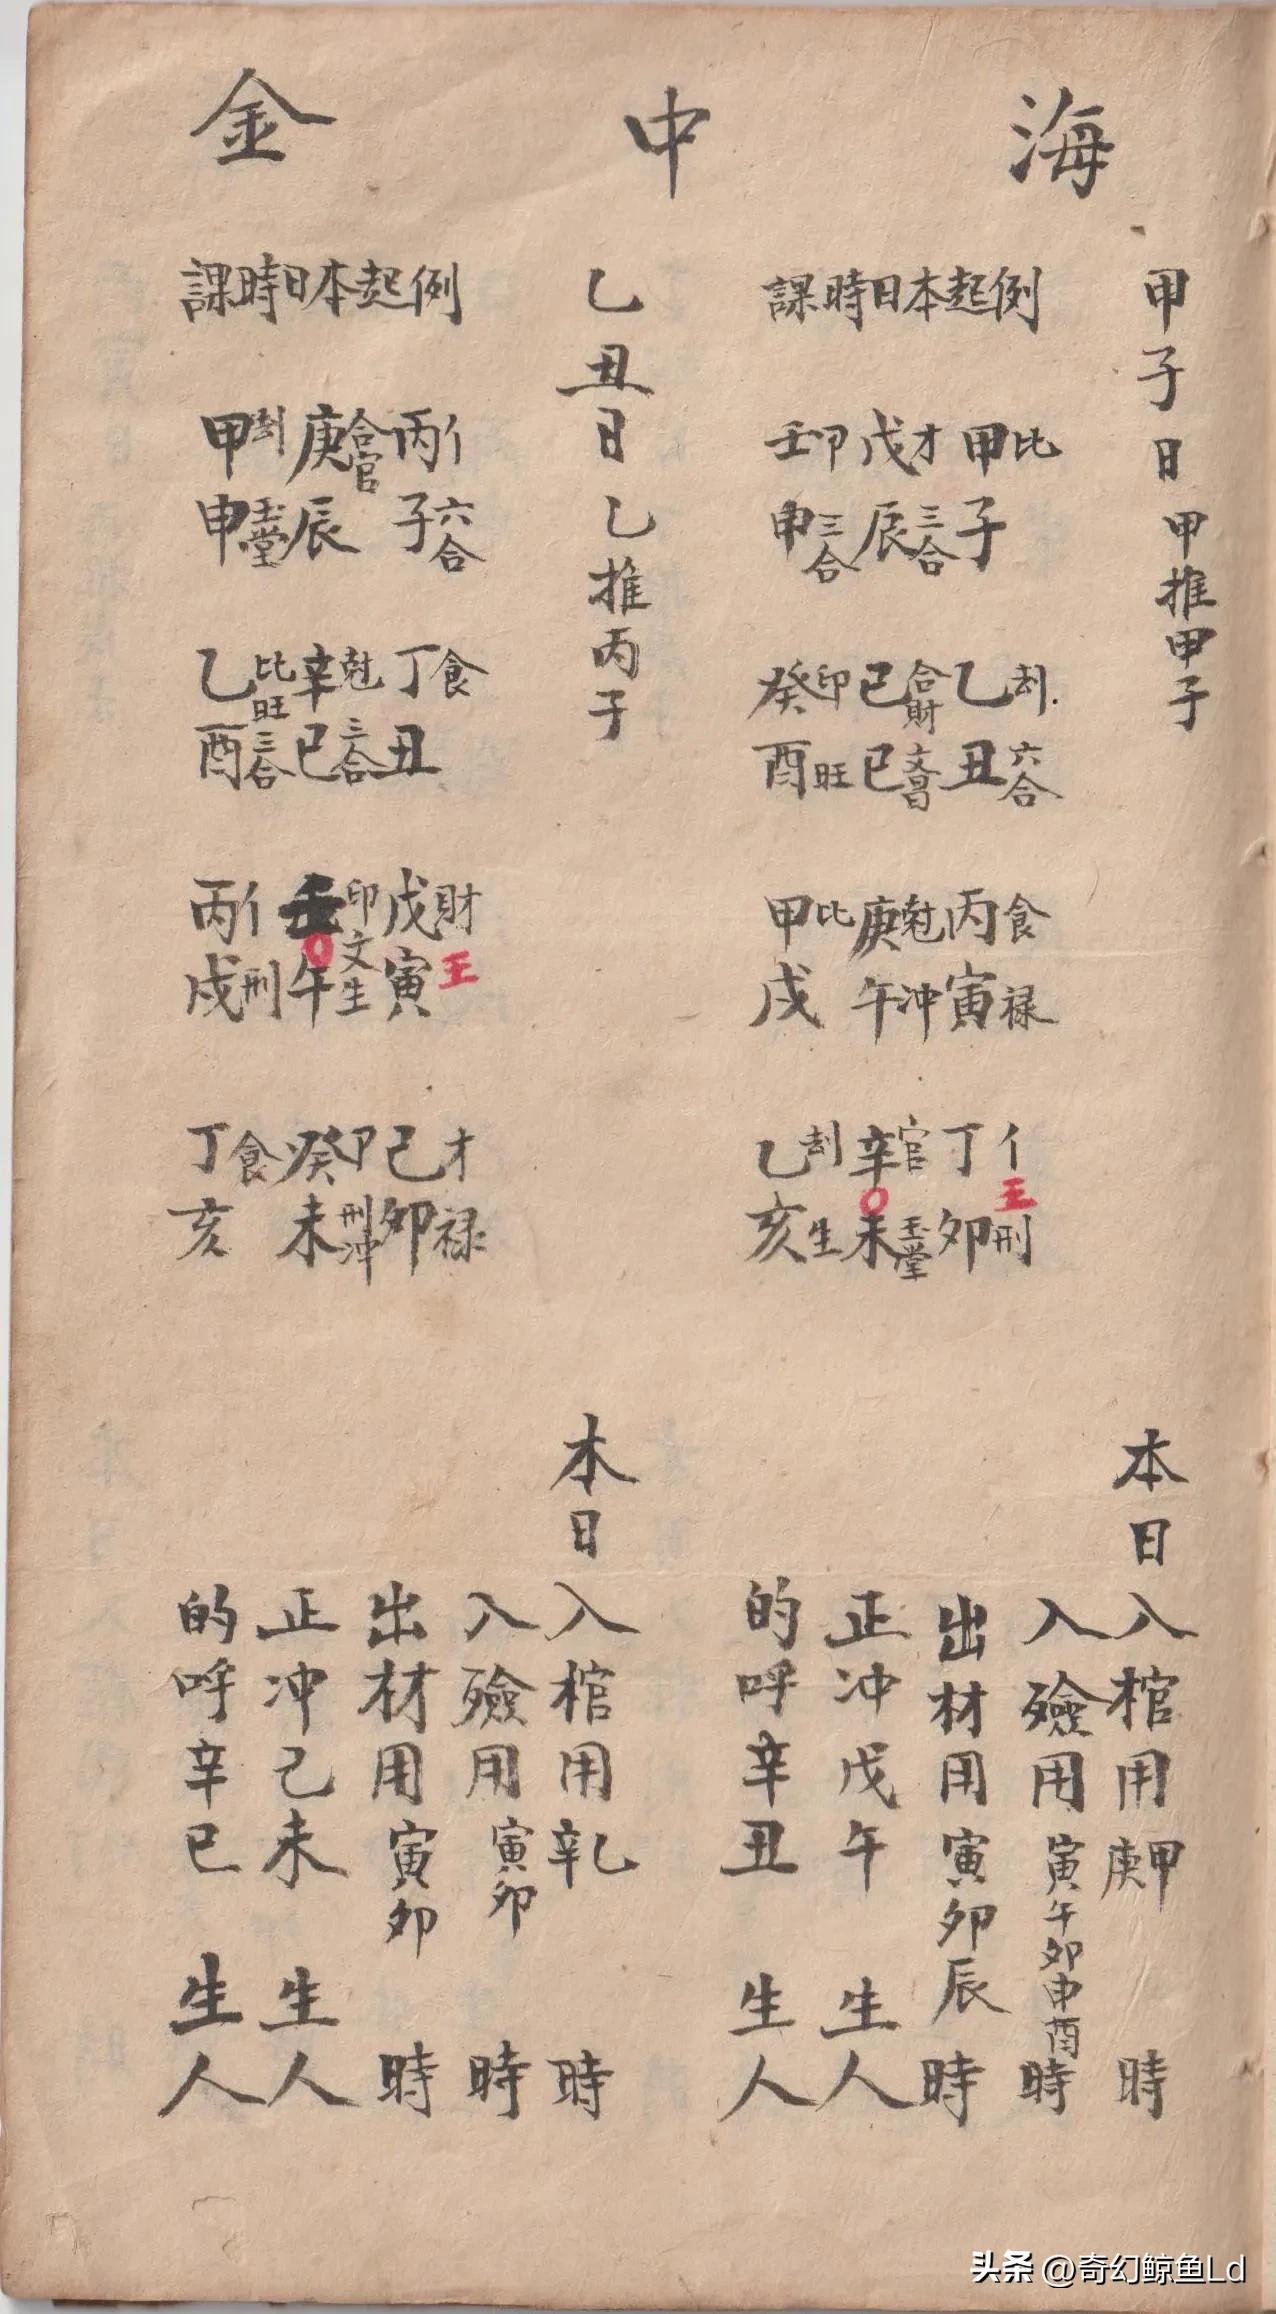 海中金
甲子日甲推甲子
例起本日時課
甲比 戊才 壬印
子 辰三合 申三合
乙刦 己合財 癸印
丑六合 巳文昌 酉旺
丙食 庚尅 甲比
寅禄 午冲 戌
丁亻 辛官 乙刦
王 O
卯刑 未玉堂 亥生
本日
入棺用甲庚時
入殮用寅午卯申酉時
出材用寅卯辰時
正冲戊午生人
的呼辛丑生人
乙丑日乙推丙子
例起本日時課
丙亻 庚合官 甲刦
子六合 辰 申玉堂
丁食 辛尅 乙比旺
丑 巳三合 酉三合
戊財 壬印 丙亻
王 O
寅 午文生 戌刑
己才 癸印 丁食
卯禄 未刑冲 亥
本日
入棺用辛乙時
入殮用寅卯時
出材用寅卯時
正冲己未生人
的呼辛巳生人
头条 @奇幻鲸鱼Ld